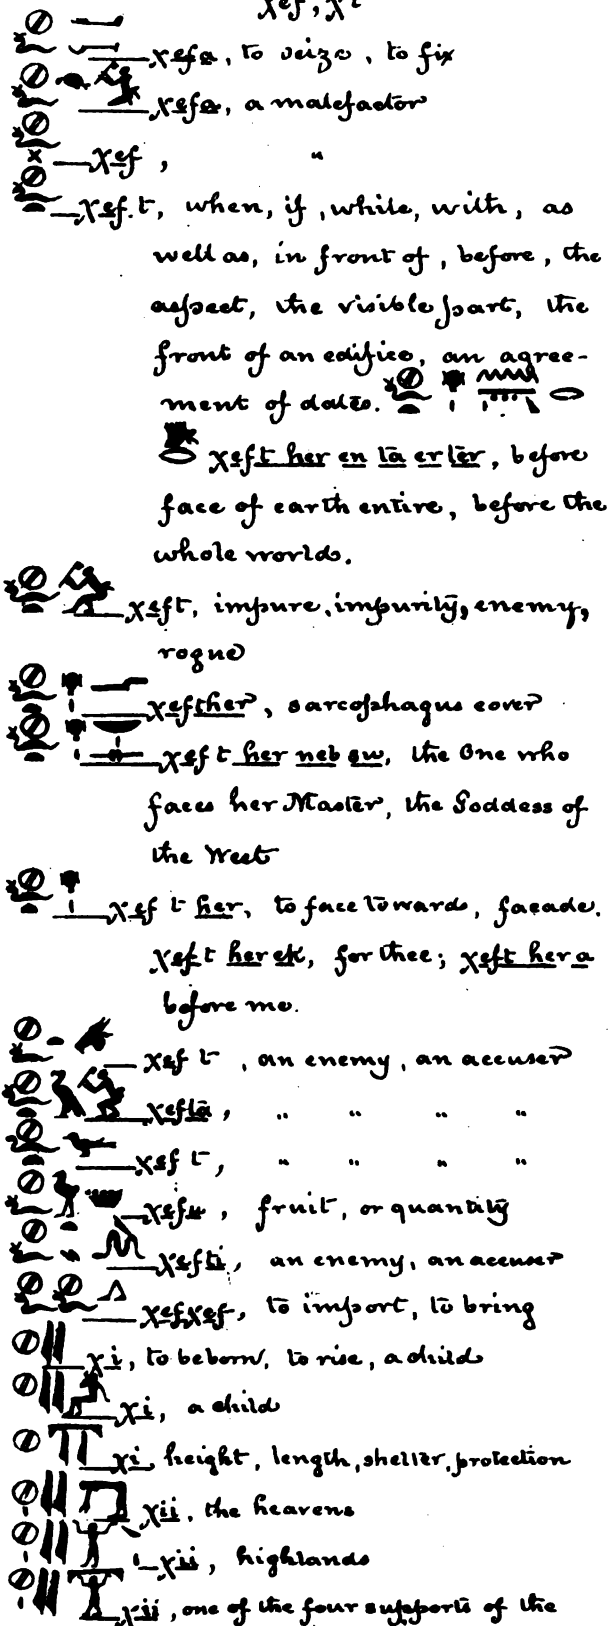 χef, χi
χefa, to seize, to fix
χefa, a malefactor
χef, "
χef.t, when, if, while, with, as
well as, in front of, before, the
aspect, the visible part, the
front of an edifice, an agree-
ment of dates.
χeft her en ta er ter, before
face of earth entire, before the
whole world.
χeft, impure, impurity, enemy,
rogue
χefther, sarcophagus cover
χef t her neb sw, the One who
faces her Master, the Goddess of
the West
χef t her, to face toward, facade.
χeft her ek, for thee; χeft her a
before me.
χef t, an enemy, an accuser
χefta, " " " "
χef t, " " " "
χefu, fruit, or quantity
χefti, an enemy, an accuser
χefχef, to import, to bring
χi, to be born, to rise, a child
χi, a child
χi, height, length, shelter, protection
χii, the heavens
χii, highlands
χii, one of the four supports of the